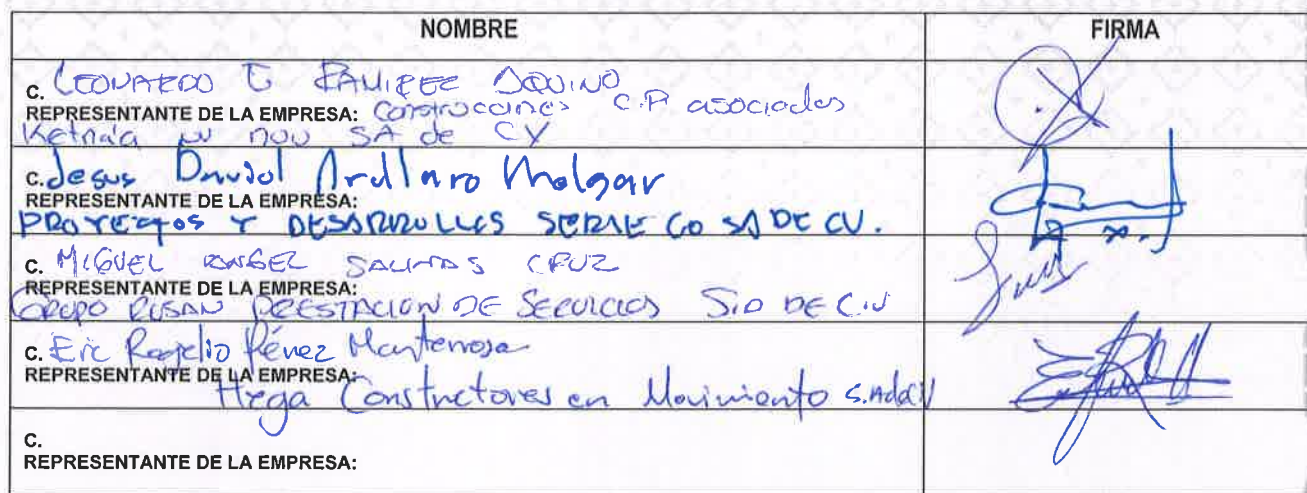 NOMBRE FIRMA
C. LEONARDO G RAMIREZ AQUINO
REPRESENTANTE DE LA EMPRESA: Construcciones C.P. asociados
nou SA de CV
C. Jesus David Arellano Melgar
REPRESENTANTE DE LA EMPRESA:
PROYECTOS Y DESARROLLOS SERVECO SA DE CV.
C. MIGUEL ANGEL SALINAS CRUZ
REPRESENTANTE DE LA EMPRESA:
GRUPO RUSAN PRESTACION DE SERVICIOS S.A DE C.V
C. Eric Rogelio Pérez Monterrosa
REPRESENTANTE DE LA EMPRESA:
Hega Constructores en Movimiento S.A de CV
C.
REPRESENTANTE DE LA EMPRESA: